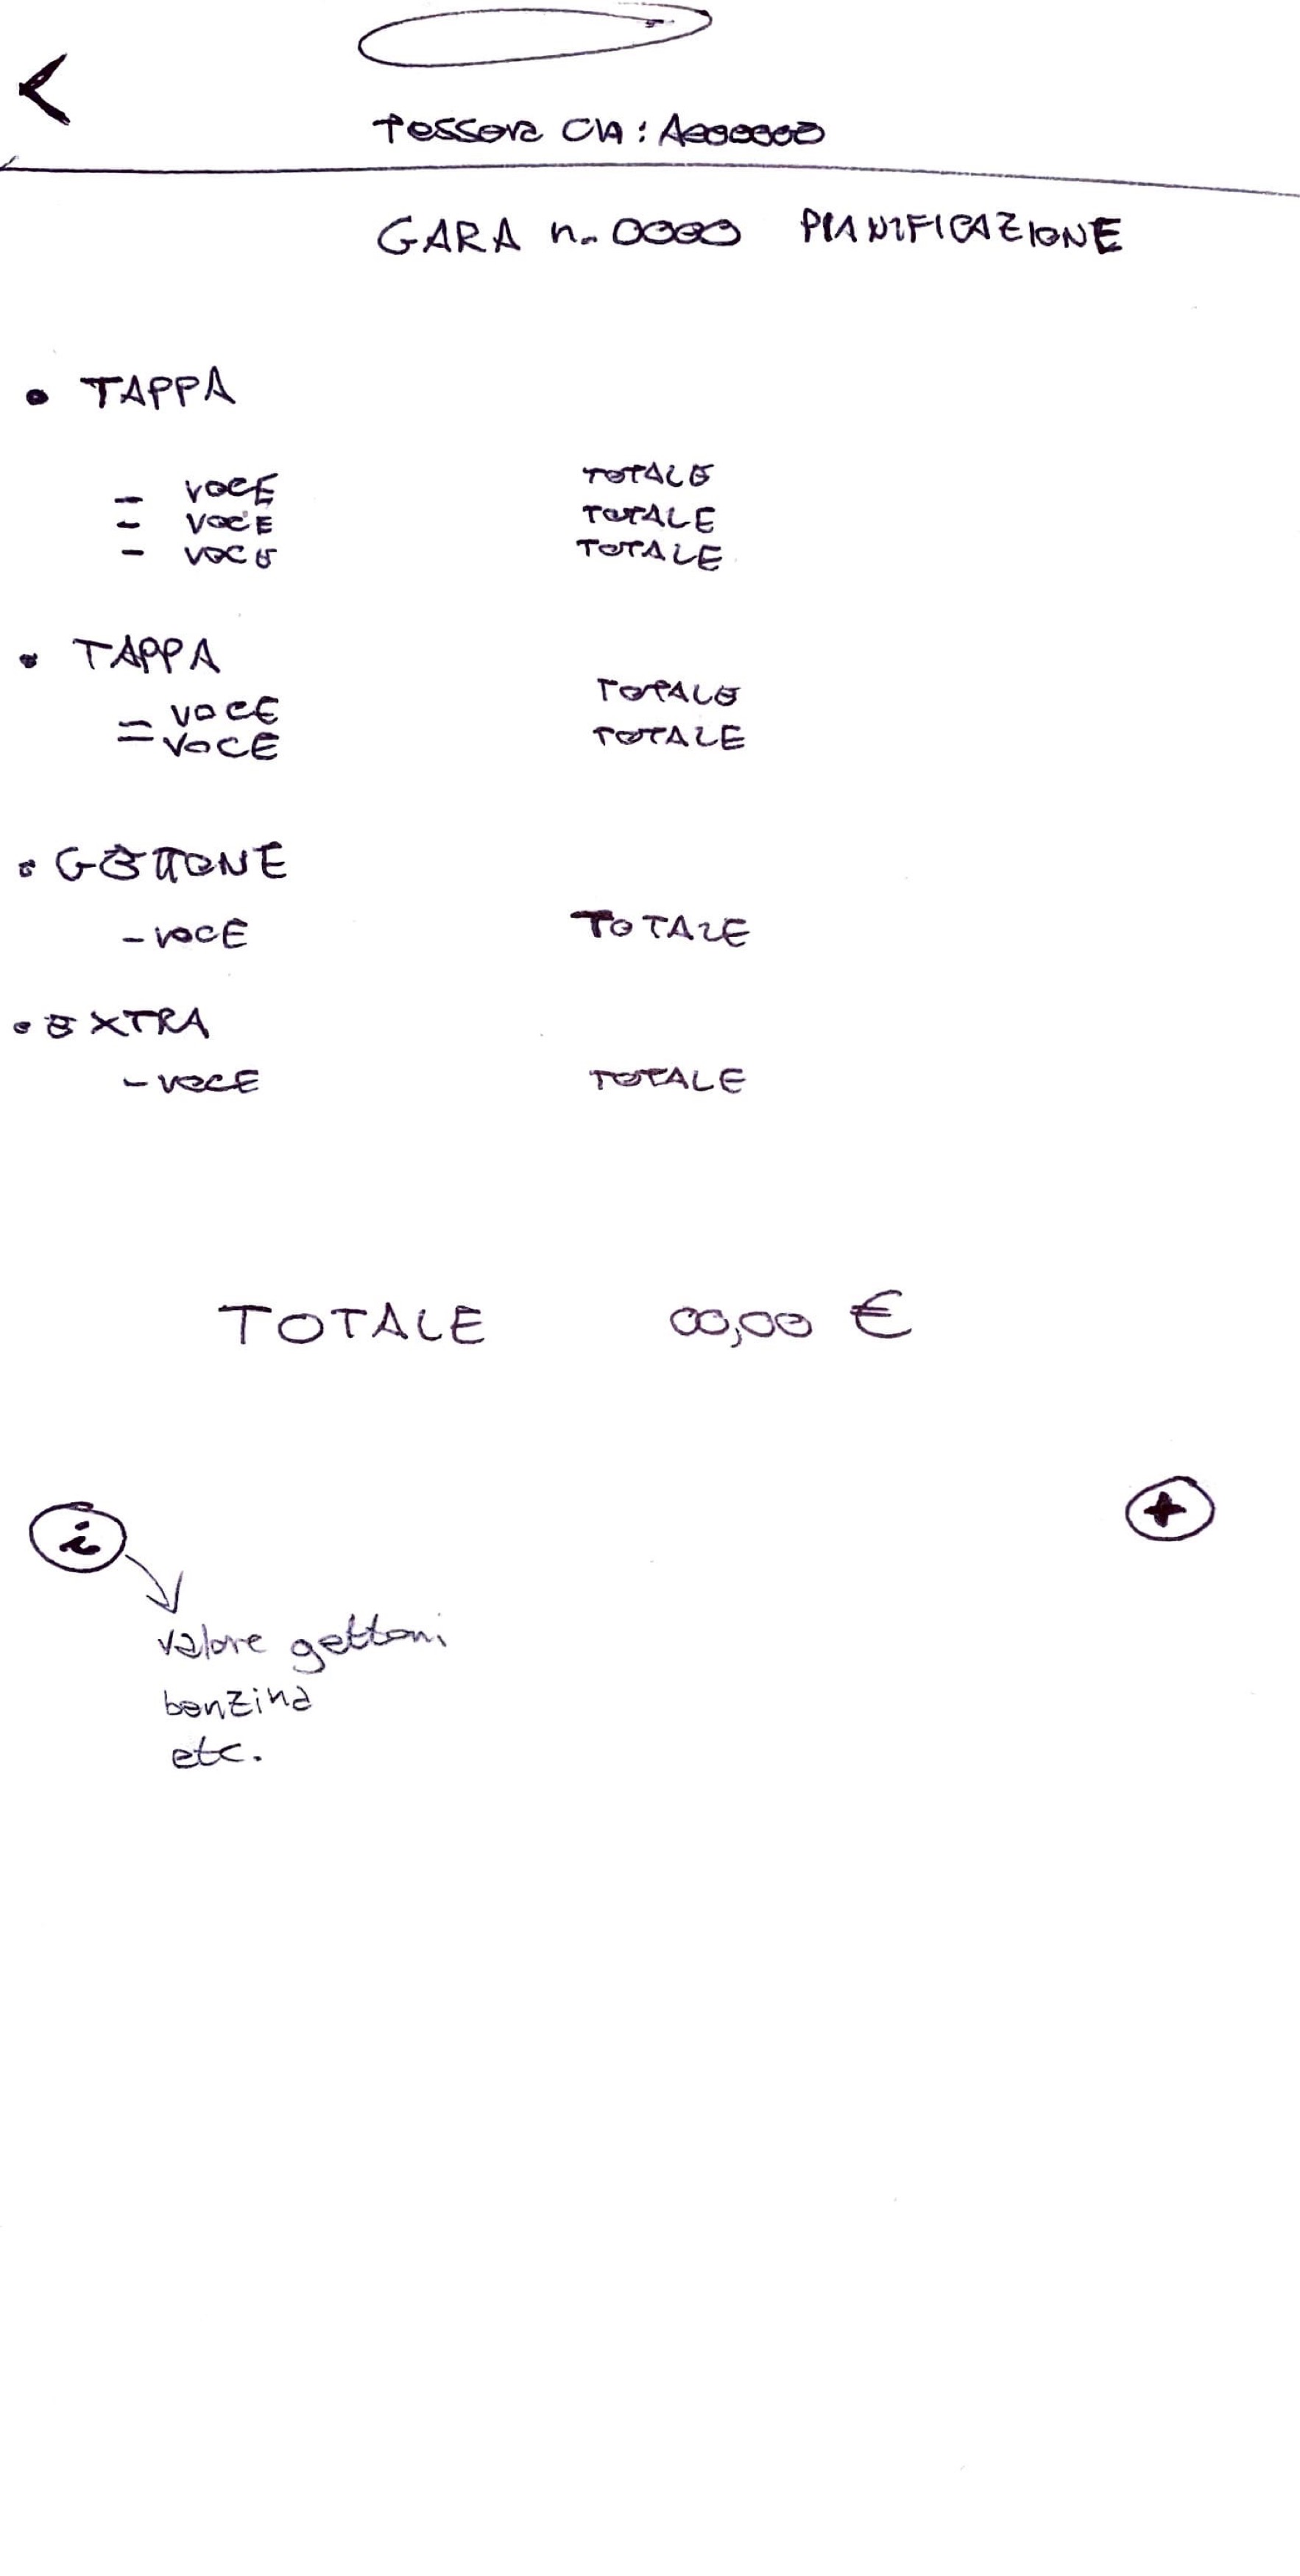 <
Tessera CIA: A000000
GARA n. 0000 PIANIFICAZIONE
• TAPPA
- VOCE TOTALE
- VOCE TOTALE
- VOCE TOTALE
• TAPPA
- VOCE TOTALE
- VOCE TOTALE
• GETTONE
- VOCE TOTALE
• EXTRA
- VOCE TOTALE
TOTALE 00,00 €
i +
valore gettoni
benzina
etc.